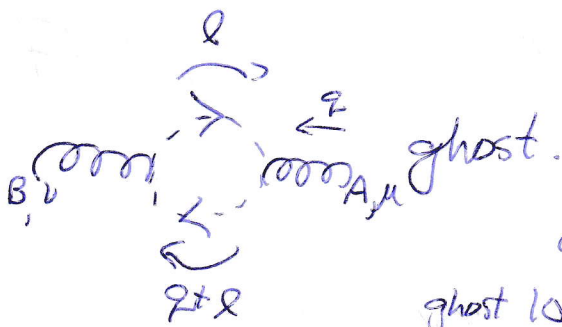 l
q
B, ν
A, μ ghost.
q+l
ghost lo